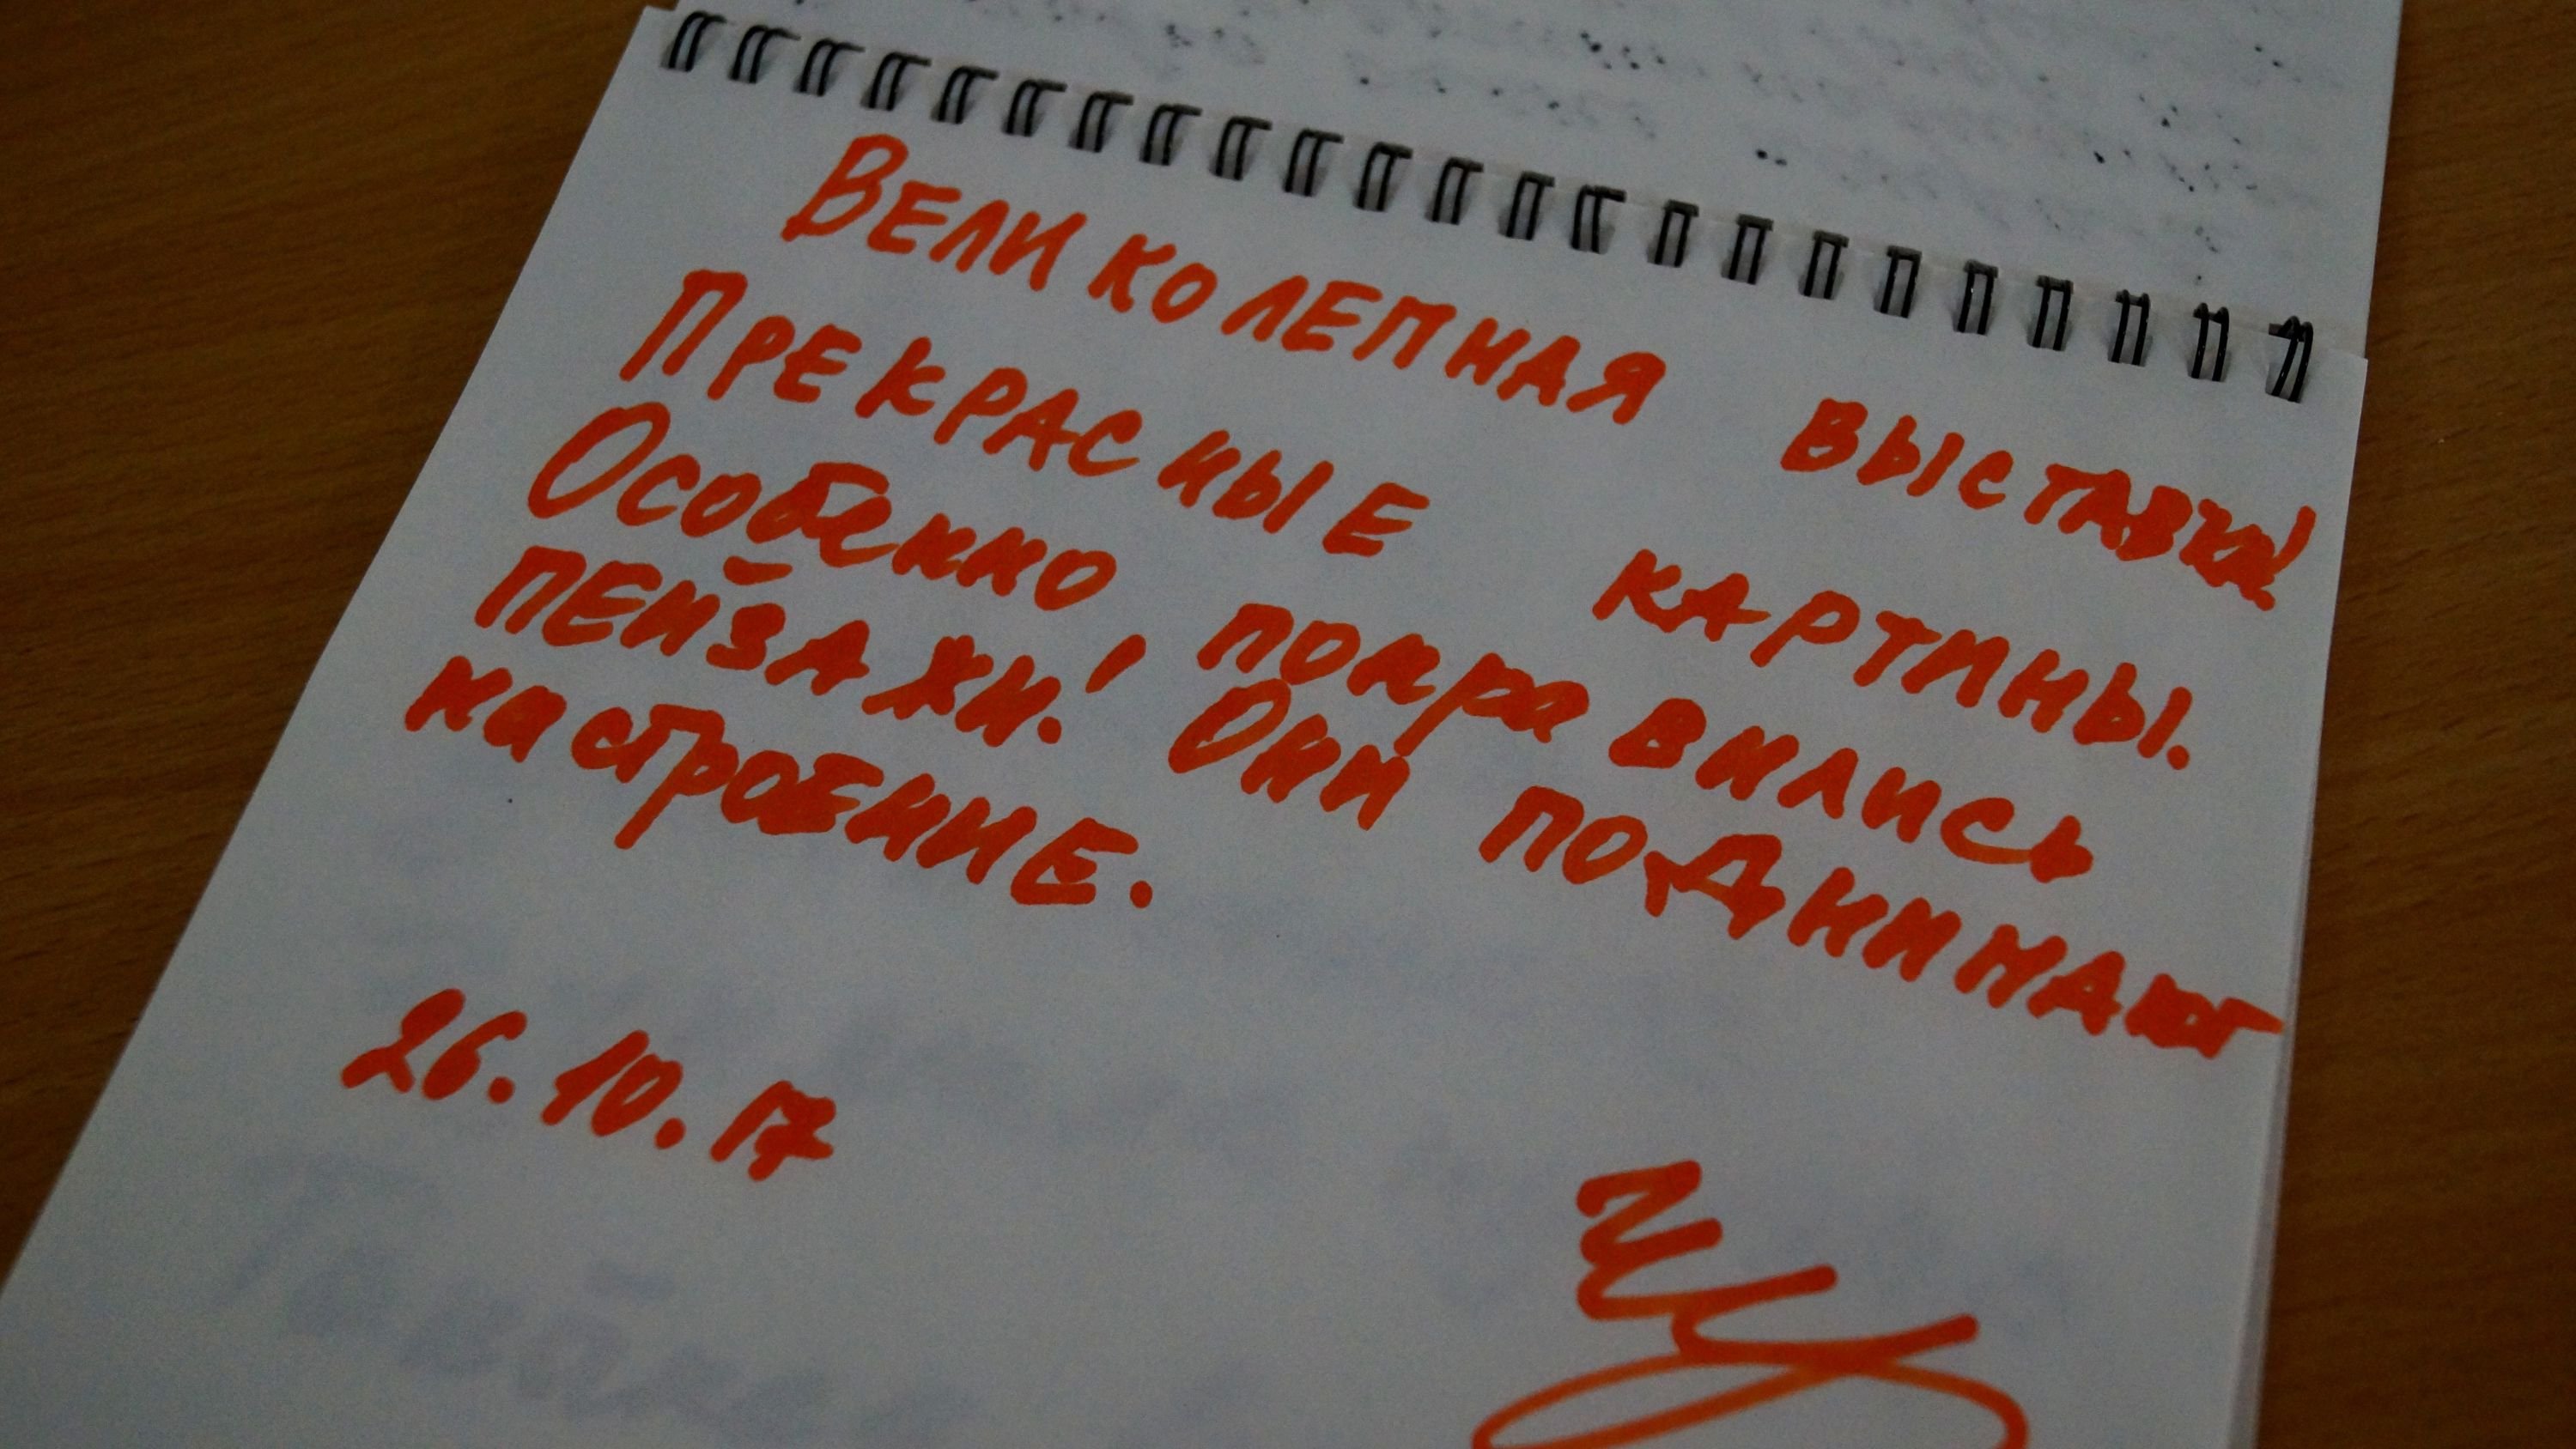 Великолепная выставка!
Прекрасные картины.
Особенно понравились
пейзажи! Они поднимают
настроение.
26.10.17